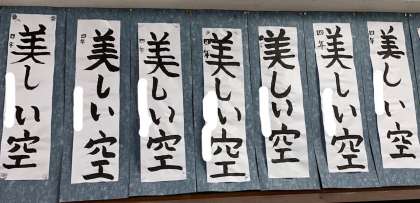 美しい空
四年
美しい空
四年
美しい空
四年
美しい空
四年
美しい空
四年
美しい空
四年
美しい空
四年